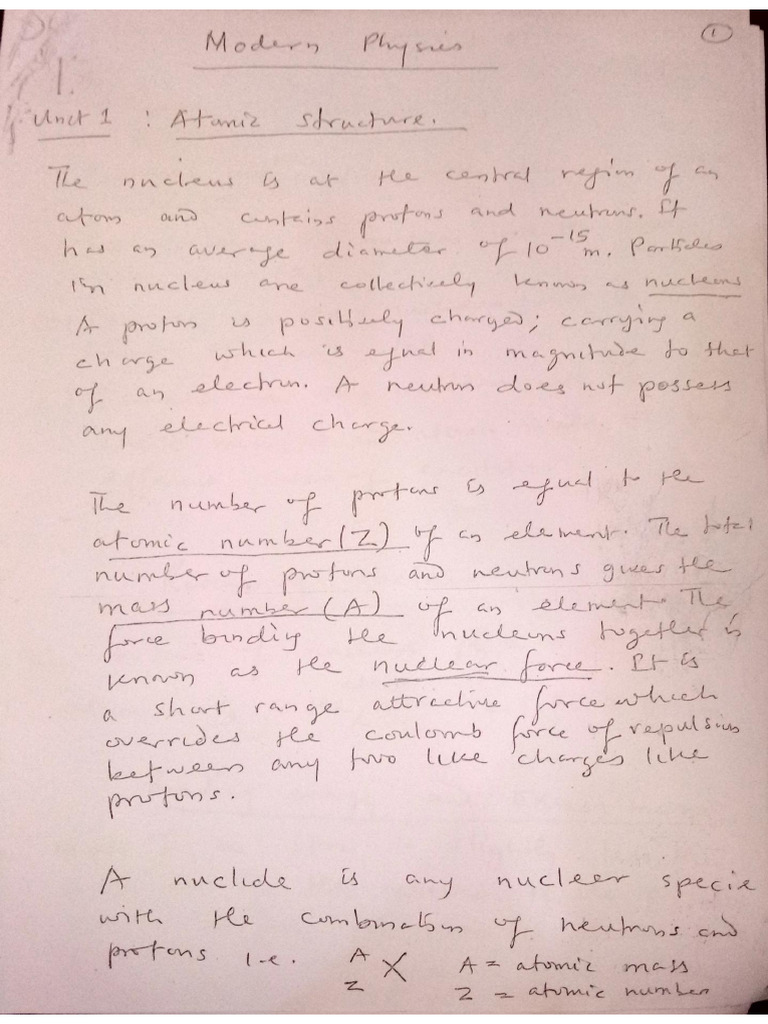 1
Modern Physics
1.
Unit 1 : Atomic Structure.
The nucleus is at the central region of an
atom and contains protons and neutrons. It
has an average diameter of 10⁻¹⁵m. Particles
in nucleus are collectively known as nucleons
A proton is positively charged; carrying a
charge which is equal in magnitude to that
of an electron. A neutron does not possess
any electrical charge.
The number of protons is equal to the
atomic number (Z) of an element. The total
number of protons and neutrons gives the
mass number (A) of an element. The
force binding the nucleons together is
known as the nuclear force. It is
a short range attractive force which
overrides the coulomb force of repulsion
between any two like charges like
protons.
A nuclide is any nuclear specie
with the combination of neutrons and
protons i.e. A Z X A = atomic mass
Z = atomic number